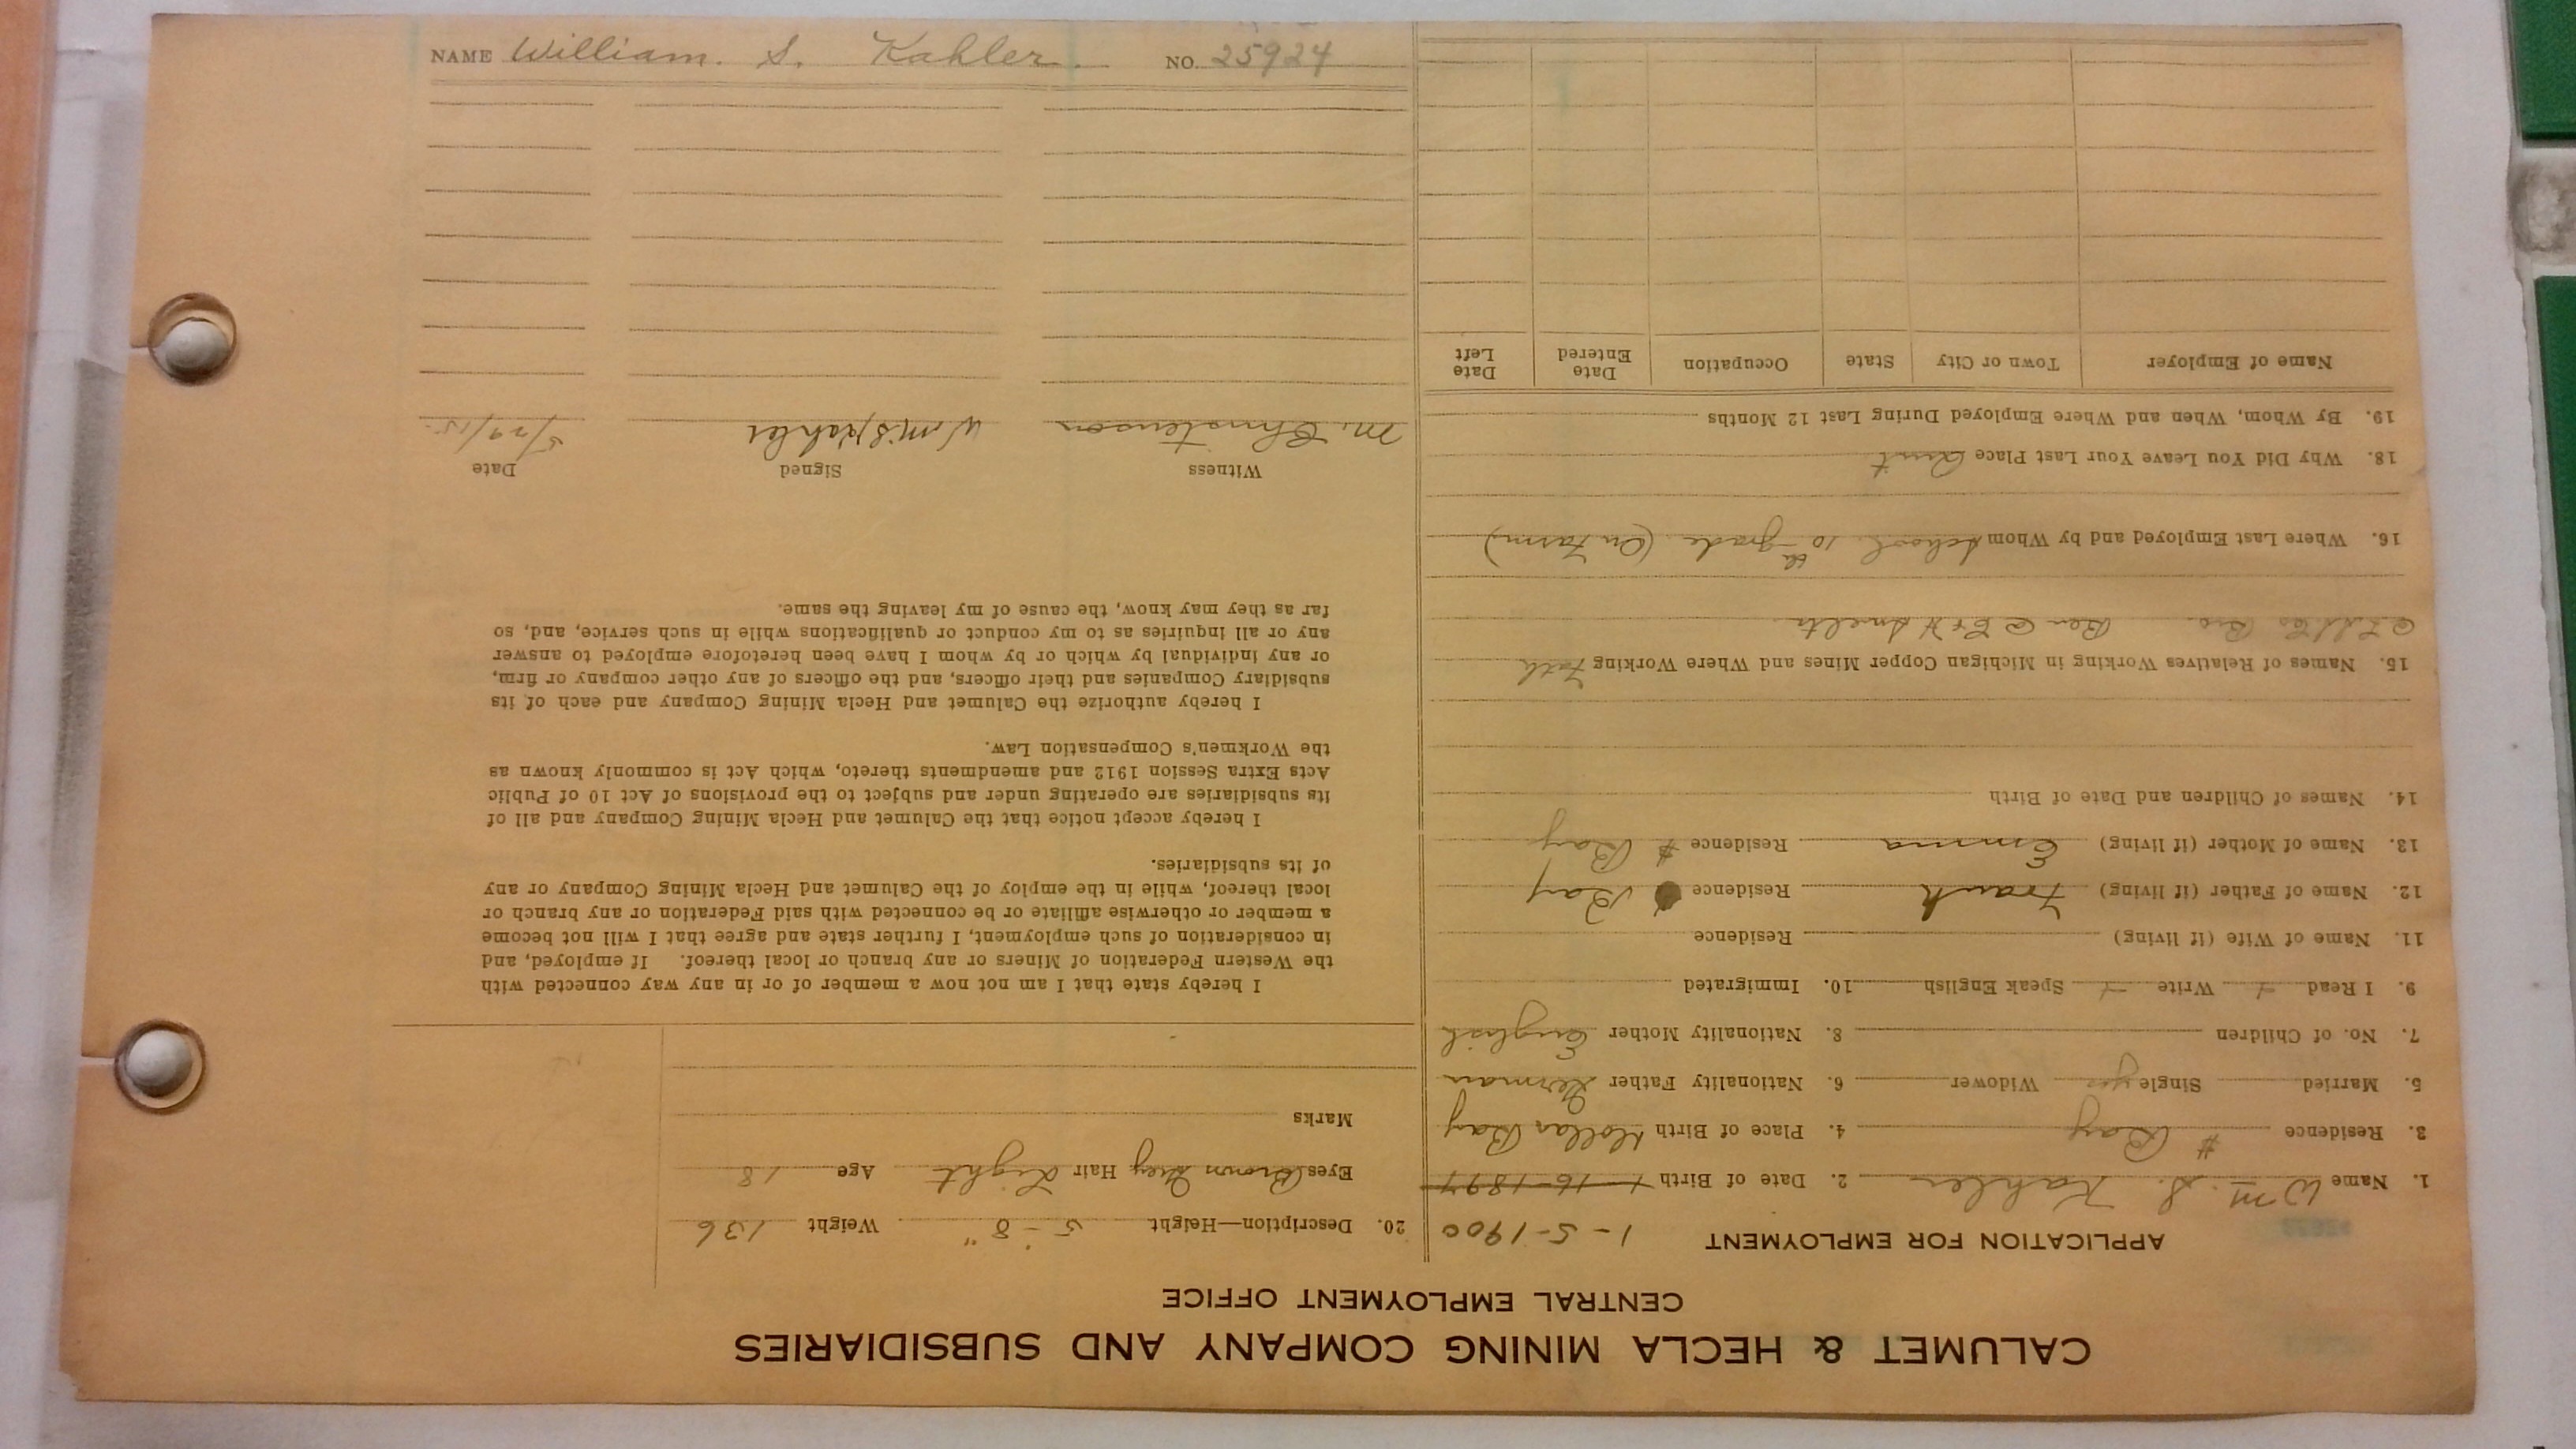 CALUMET & HECLA MINING COMPANY AND SUBSIDIARIES
CENTRAL EMPLOYMENT OFFICE
APPLICATION FOR EMPLOYMENT 1-5-1900
1. Name Wm. S. Kahler 2. Date of Birth 1-16-1897
3. Residence # Bay 4. Place of Birth Dollar Bay
5. Married Single yes Widower 6. Nationality Father German
7. No. of Children 8. Nationality Mother English
9. I Read Write Speak English 10. Immigrated
11. Name of Wife (if living) Residence
12. Name of Father (if living) Frank Residence Bay
13. Name of Mother (if living) Emma Residence # Bay
14. Names of Children and Date of Birth
15. Names of Relatives Working in Michigan Copper Mines and Where Working Fath
Bro. Ben C & H Smelts
16. Where Last Employed and by Whom School 10th grade (On Farm)
18. Why Did You Leave Your Last Place
19. By Whom, When and Where Employed During Last 12 Months
Name of Employer Town or City State Occupation Date Entered Date Left
20. Description—Height 5-8" Weight 136
Eyes Brown Grey Hair Light Age 18
Marks
I hereby state that I am not now a member of or in any way connected with
the Western Federation of Miners or any branch or local thereof. If employed, and
in consideration of such employment, I further state and agree that I will not become
a member or otherwise affiliate or be connected with said Federation or any branch or
local thereof, while in the employ of the Calumet and Hecla Mining Company or any
of its subsidiaries.
I hereby accept notice that the Calumet and Hecla Mining Company and all of
its subsidiaries are operating under and subject to the provisions of Act 10 of Public
Acts Extra Session 1912 and amendments thereto, which Act is commonly known as
the Workmen's Compensation Law.
I hereby authorize the Calumet and Hecla Mining Company and each of its
subsidiary Companies and their officers, and the officers of any other company or firm,
or any individual by which or by whom I have been heretofore employed to answer
any or all inquiries as to my conduct or qualifications while in such service, and, so
far as they may know, the cause of my leaving the same.
Witness Signed Date
M. Christenson Wm S Kahler 5/29/15
NAME William. S. Kahler. NO. 25924